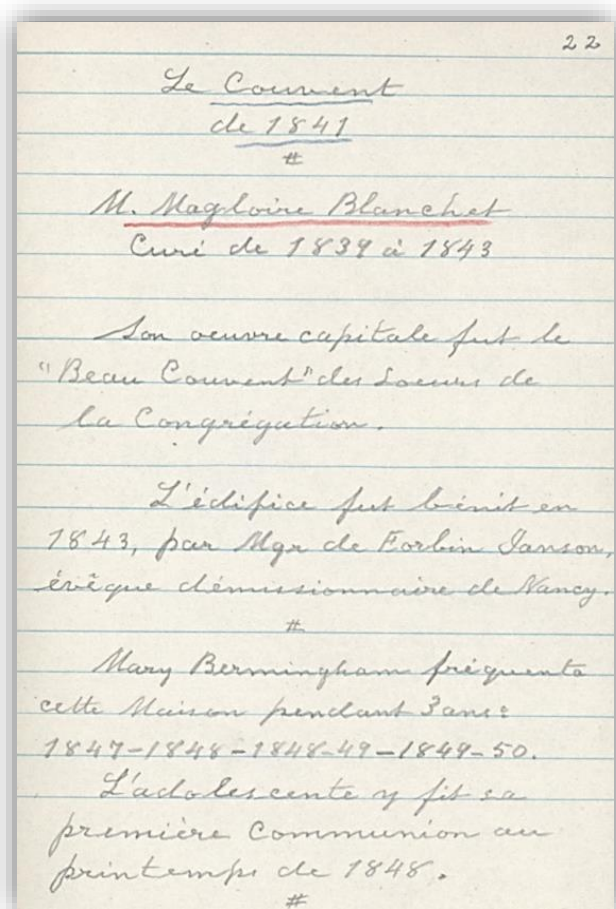 22
Le Couvent
de 1841
#
M. Magloire Blanchet
Curé de 1839 à 1843
Son oeuvre capitale fut le
"Beau Couvent" des Soeurs de
la Congrégation.
L'édifice fut bénit en
1843, par Mgr de Forbin Janson,
évêque démissionnaire de Nancy.
#
Mary Bermingham fréquenta
cette Maison pendant 3 ans:
1847-1848-1848-49-1849-50.
L'adolescente y fit sa
première Communion au
printemps de 1848.
#